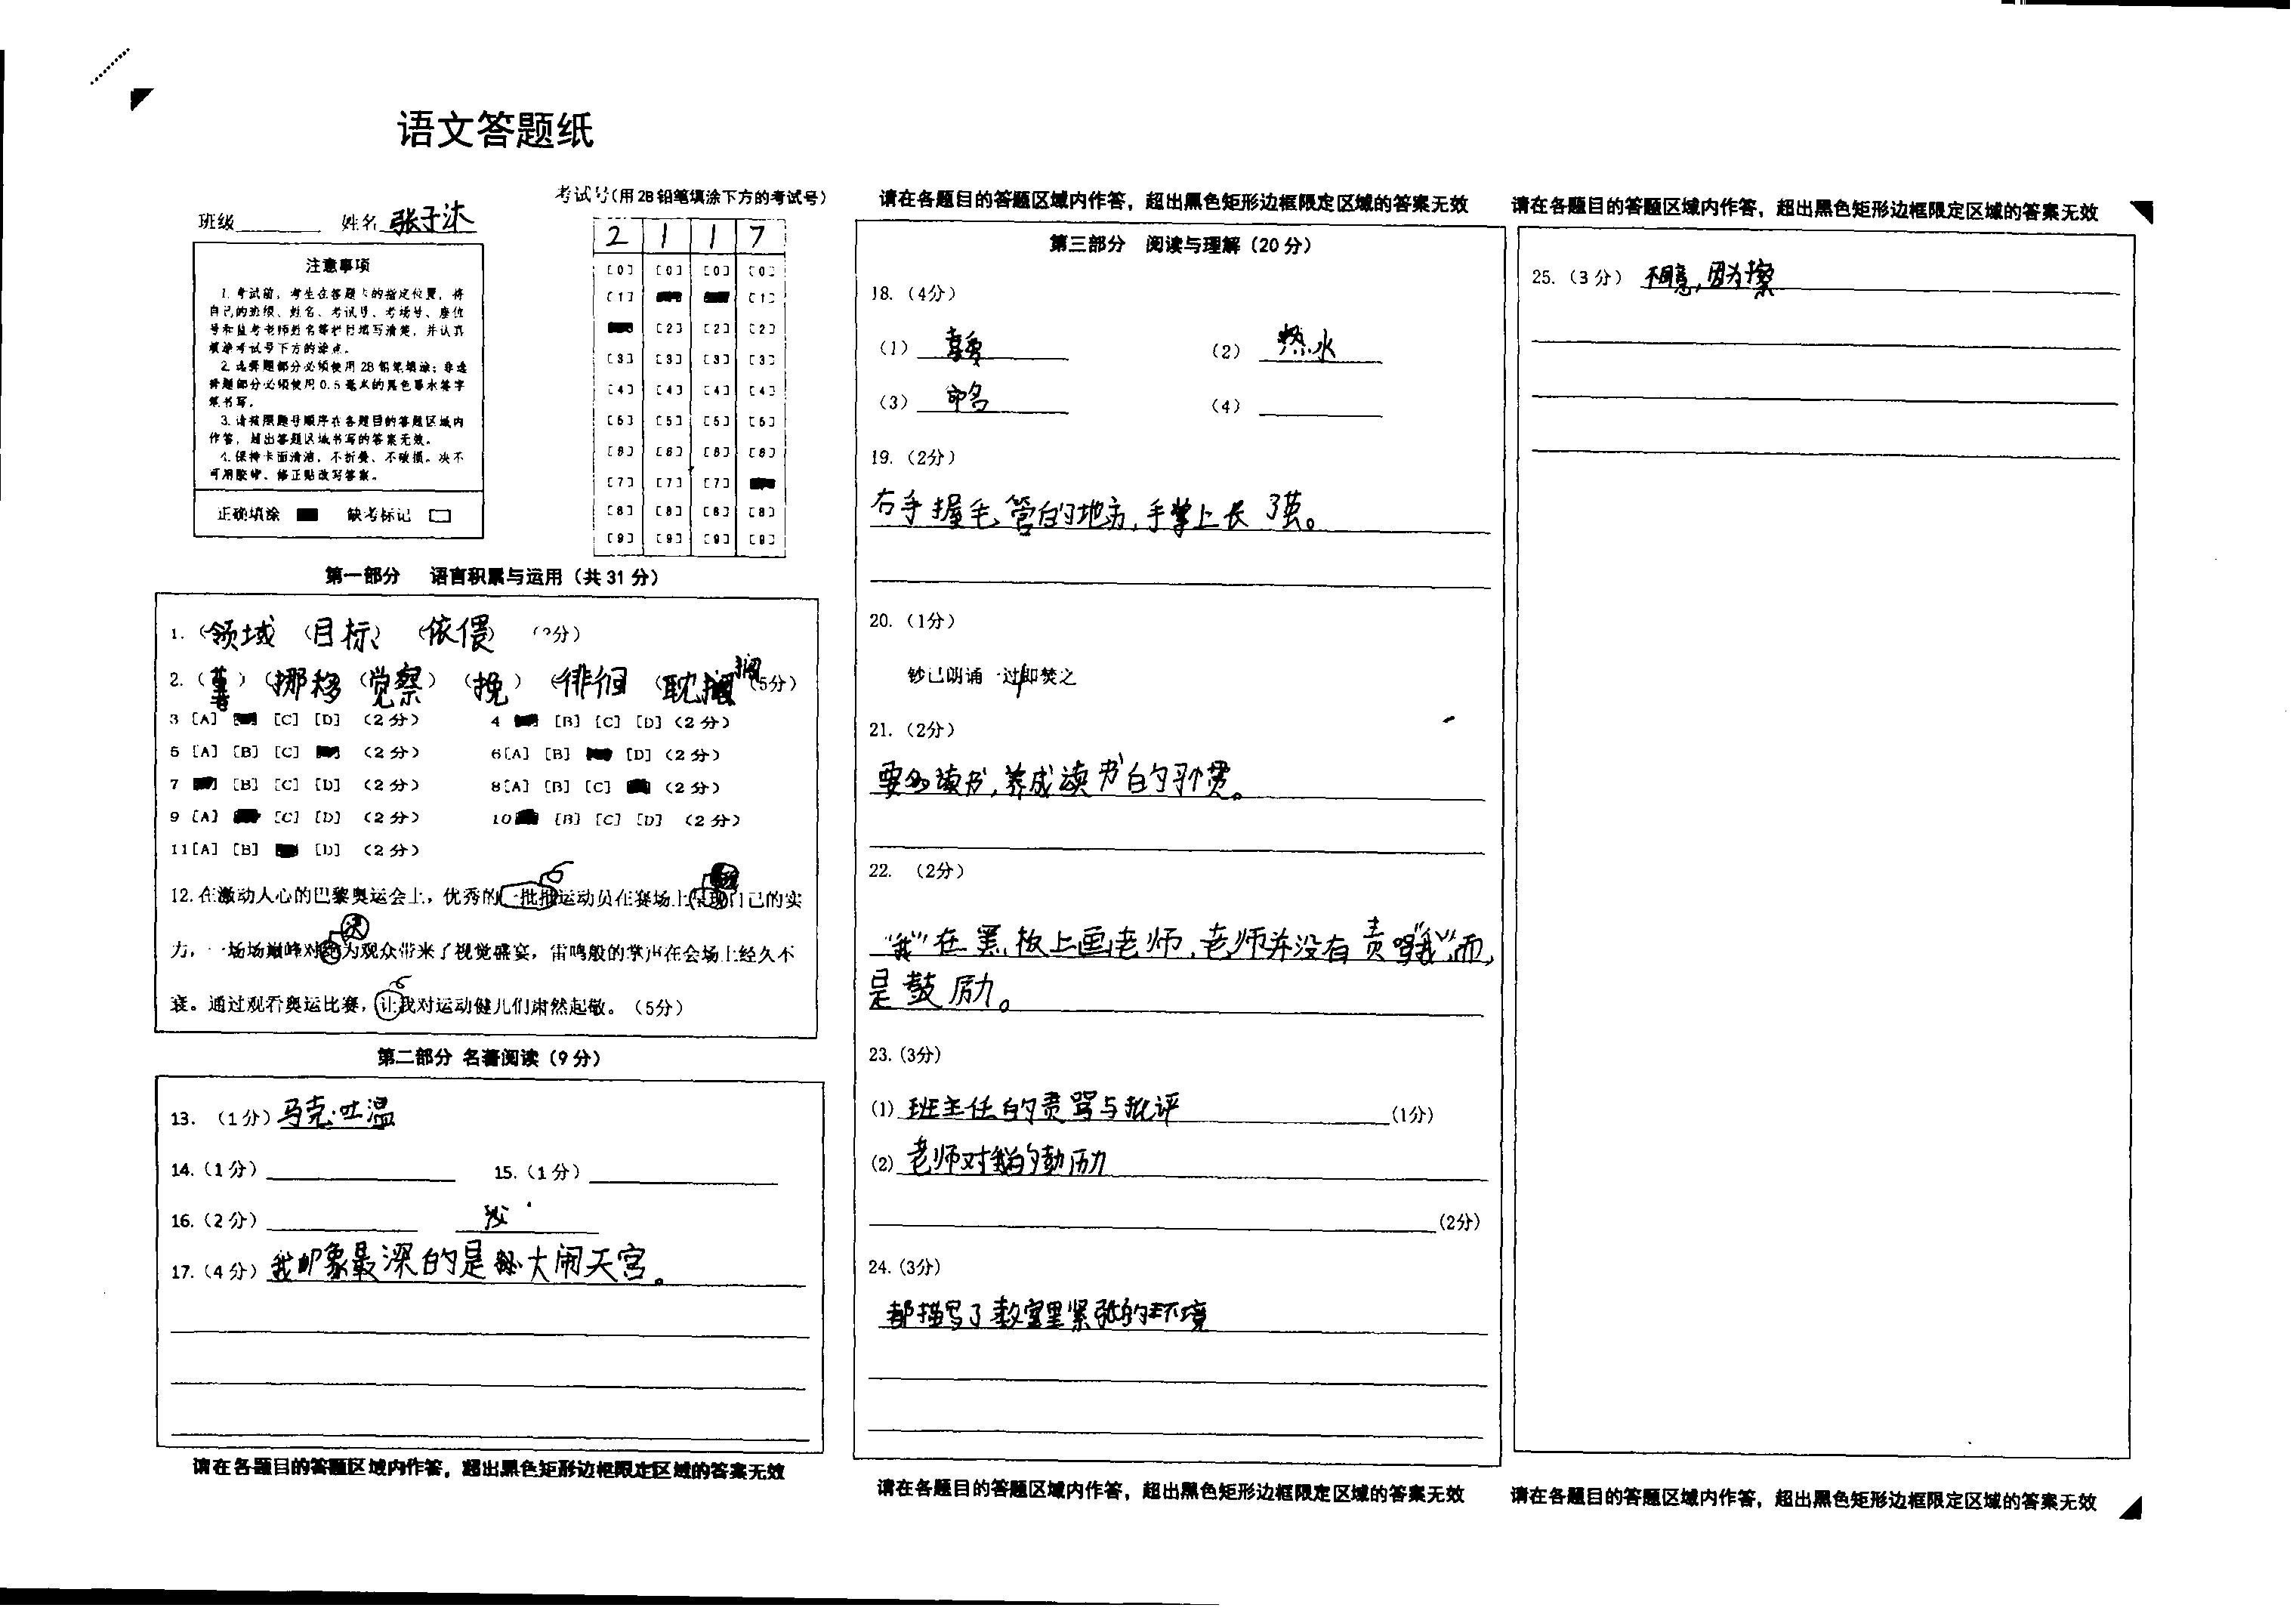 语文答题纸
班级 姓名 张子沐
考试号(用2B铅笔填涂下方的考试号)
2 1 1 7
注意事项
1.考试前，考生在答题卡的指定位置，将
自己的班级、姓名、考试号、考场号、座位
号和监考老师姓名等栏目填写清楚，并认真
填涂考试号下方的涂点。
2.选择题部分必须使用2B铅笔填涂；非选
择题部分必须使用0.5毫米的黑色墨水签字
笔书写。
3.请按照题号顺序在各题目的答题区域内
作答，超出答题区域书写的答案无效。
4.保持卡面清洁，不折叠、不破损。决不
可用胶带、修正贴改写答案。
正确填涂 缺考标记
[0] [0] [0] [0]
[1] [1]
[2] [2] [2]
[3] [3] [3] [3]
[4] [4] [4] [4]
[5] [5] [5] [5]
[6] [6] [6] [6]
[7] [7] [7]
[8] [8] [8] [8]
[9] [9] [9] [9]
第一部分 语言积累与运用（共31分）
1.（领域）（目标）（依偎）（3分）
2.（ ）（挪移）（觉察）（挽）（徘徊）（耽搁）（5分）
3 [A] [C] [D] （2分） 4 [B] [C] [D]（2分）
5 [A] [B] [C] （2分） 6[A] [B] [D]（2分）
7 [B] [C] [D] （2分） 8[A] [B] [C] （2分）
9 [A] [C] [D] （2分） 10 [B] [C] [D] （2分）
11[A] [B] [D] （2分）
12.在激动人心的巴黎奥运会上，优秀的一批批运动员在赛场上 自己的实
力，一场场巅峰对 为观众带来了视觉盛宴，雷鸣般的掌声在会场上经久不
衰。通过观看奥运比赛，让我对运动健儿们肃然起敬。（5分）
第二部分 名著阅读（9分）
13.（1分）马克·吐温
14.（1分） 15.（1分）
16.（2分）
17.（4分）我印象最深的是 大闹天宫。
请在各题目的答题区域内作答，超出黑色矩形边框限定区域的答案无效
请在各题目的答题区域内作答，超出黑色矩形边框限定区域的答案无效
第三部分 阅读与理解（20分）
18.（4分）
（1） （2）热水
（3）命名 （4）
19.（2分）
右手握毛管的地方，手掌上长了茧。
20.（1分）
钞已朗诵一过/即焚之
21.（2分）
要多读书，养成读书的习惯。
22.（2分）
“我”在黑板上画老师，老师并没有责骂“我”，而
是鼓励。
23.（3分）
(1) 班主任的责骂与批评 (1分)
(2) 老师对我的 励
(2分)
24.（3分）
都描写了教室里紧张的环境
请在各题目的答题区域内作答，超出黑色矩形边框限定区域的答案无效
请在各题目的答题区域内作答，超出黑色矩形边框限定区域的答案无效
25.（3分） 不同意，因为擦
请在各题目的答题区域内作答，超出黑色矩形边框限定区域的答案无效